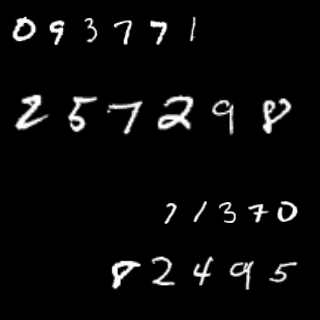 093771
257298
71370
82495